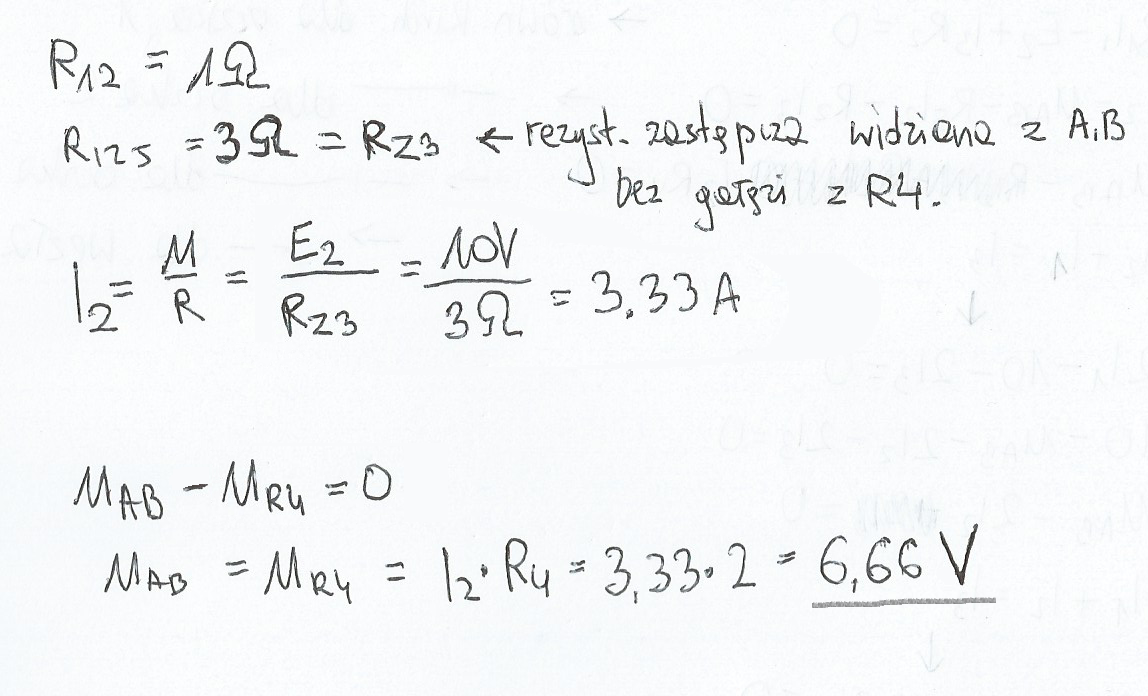 R12 = 1Ω
R125 = 3Ω = RZ3 ← rezyst. zastępcza widziana z A,B
bez gałęzi z R4.
I2 = U/R = E2/RZ3 = 10V/3Ω = 3,33A
UAB - UR4 = 0
UAB = UR4 = I2·R4 = 3,33·2 = 6,66 V